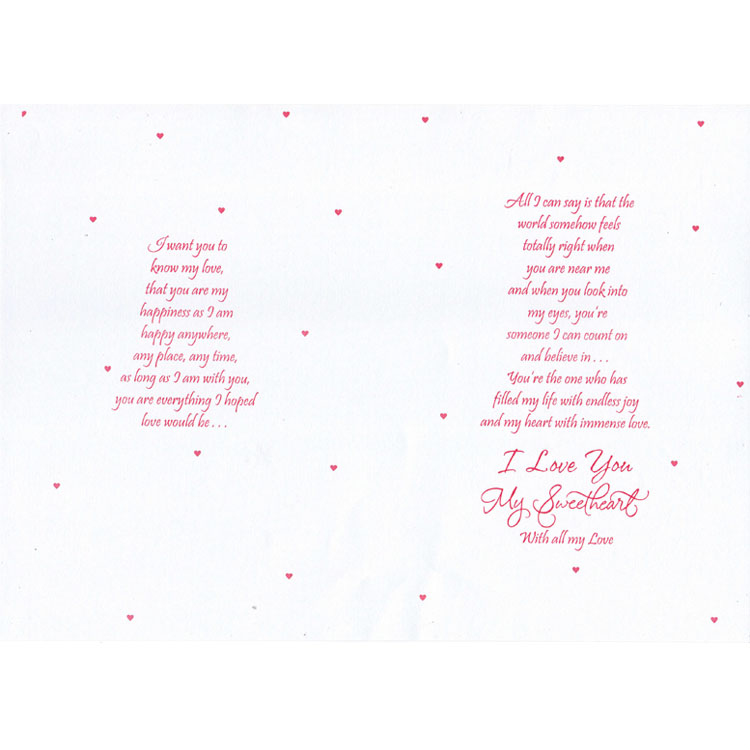 I want you to
know my love,
that you are my
happiness as I am
happy anywhere,
any place, any time,
as long as I am with you,
you are everything I hoped
love would be . . .
All I can say is that the
world somehow feels
totally right when
you are near me
and when you look into
my eyes, you're
someone I can count on
and believe in . . .
You're the one who has
filled my life with endless joy
and my heart with immense love.
I Love You
My Sweetheart
With all my Love